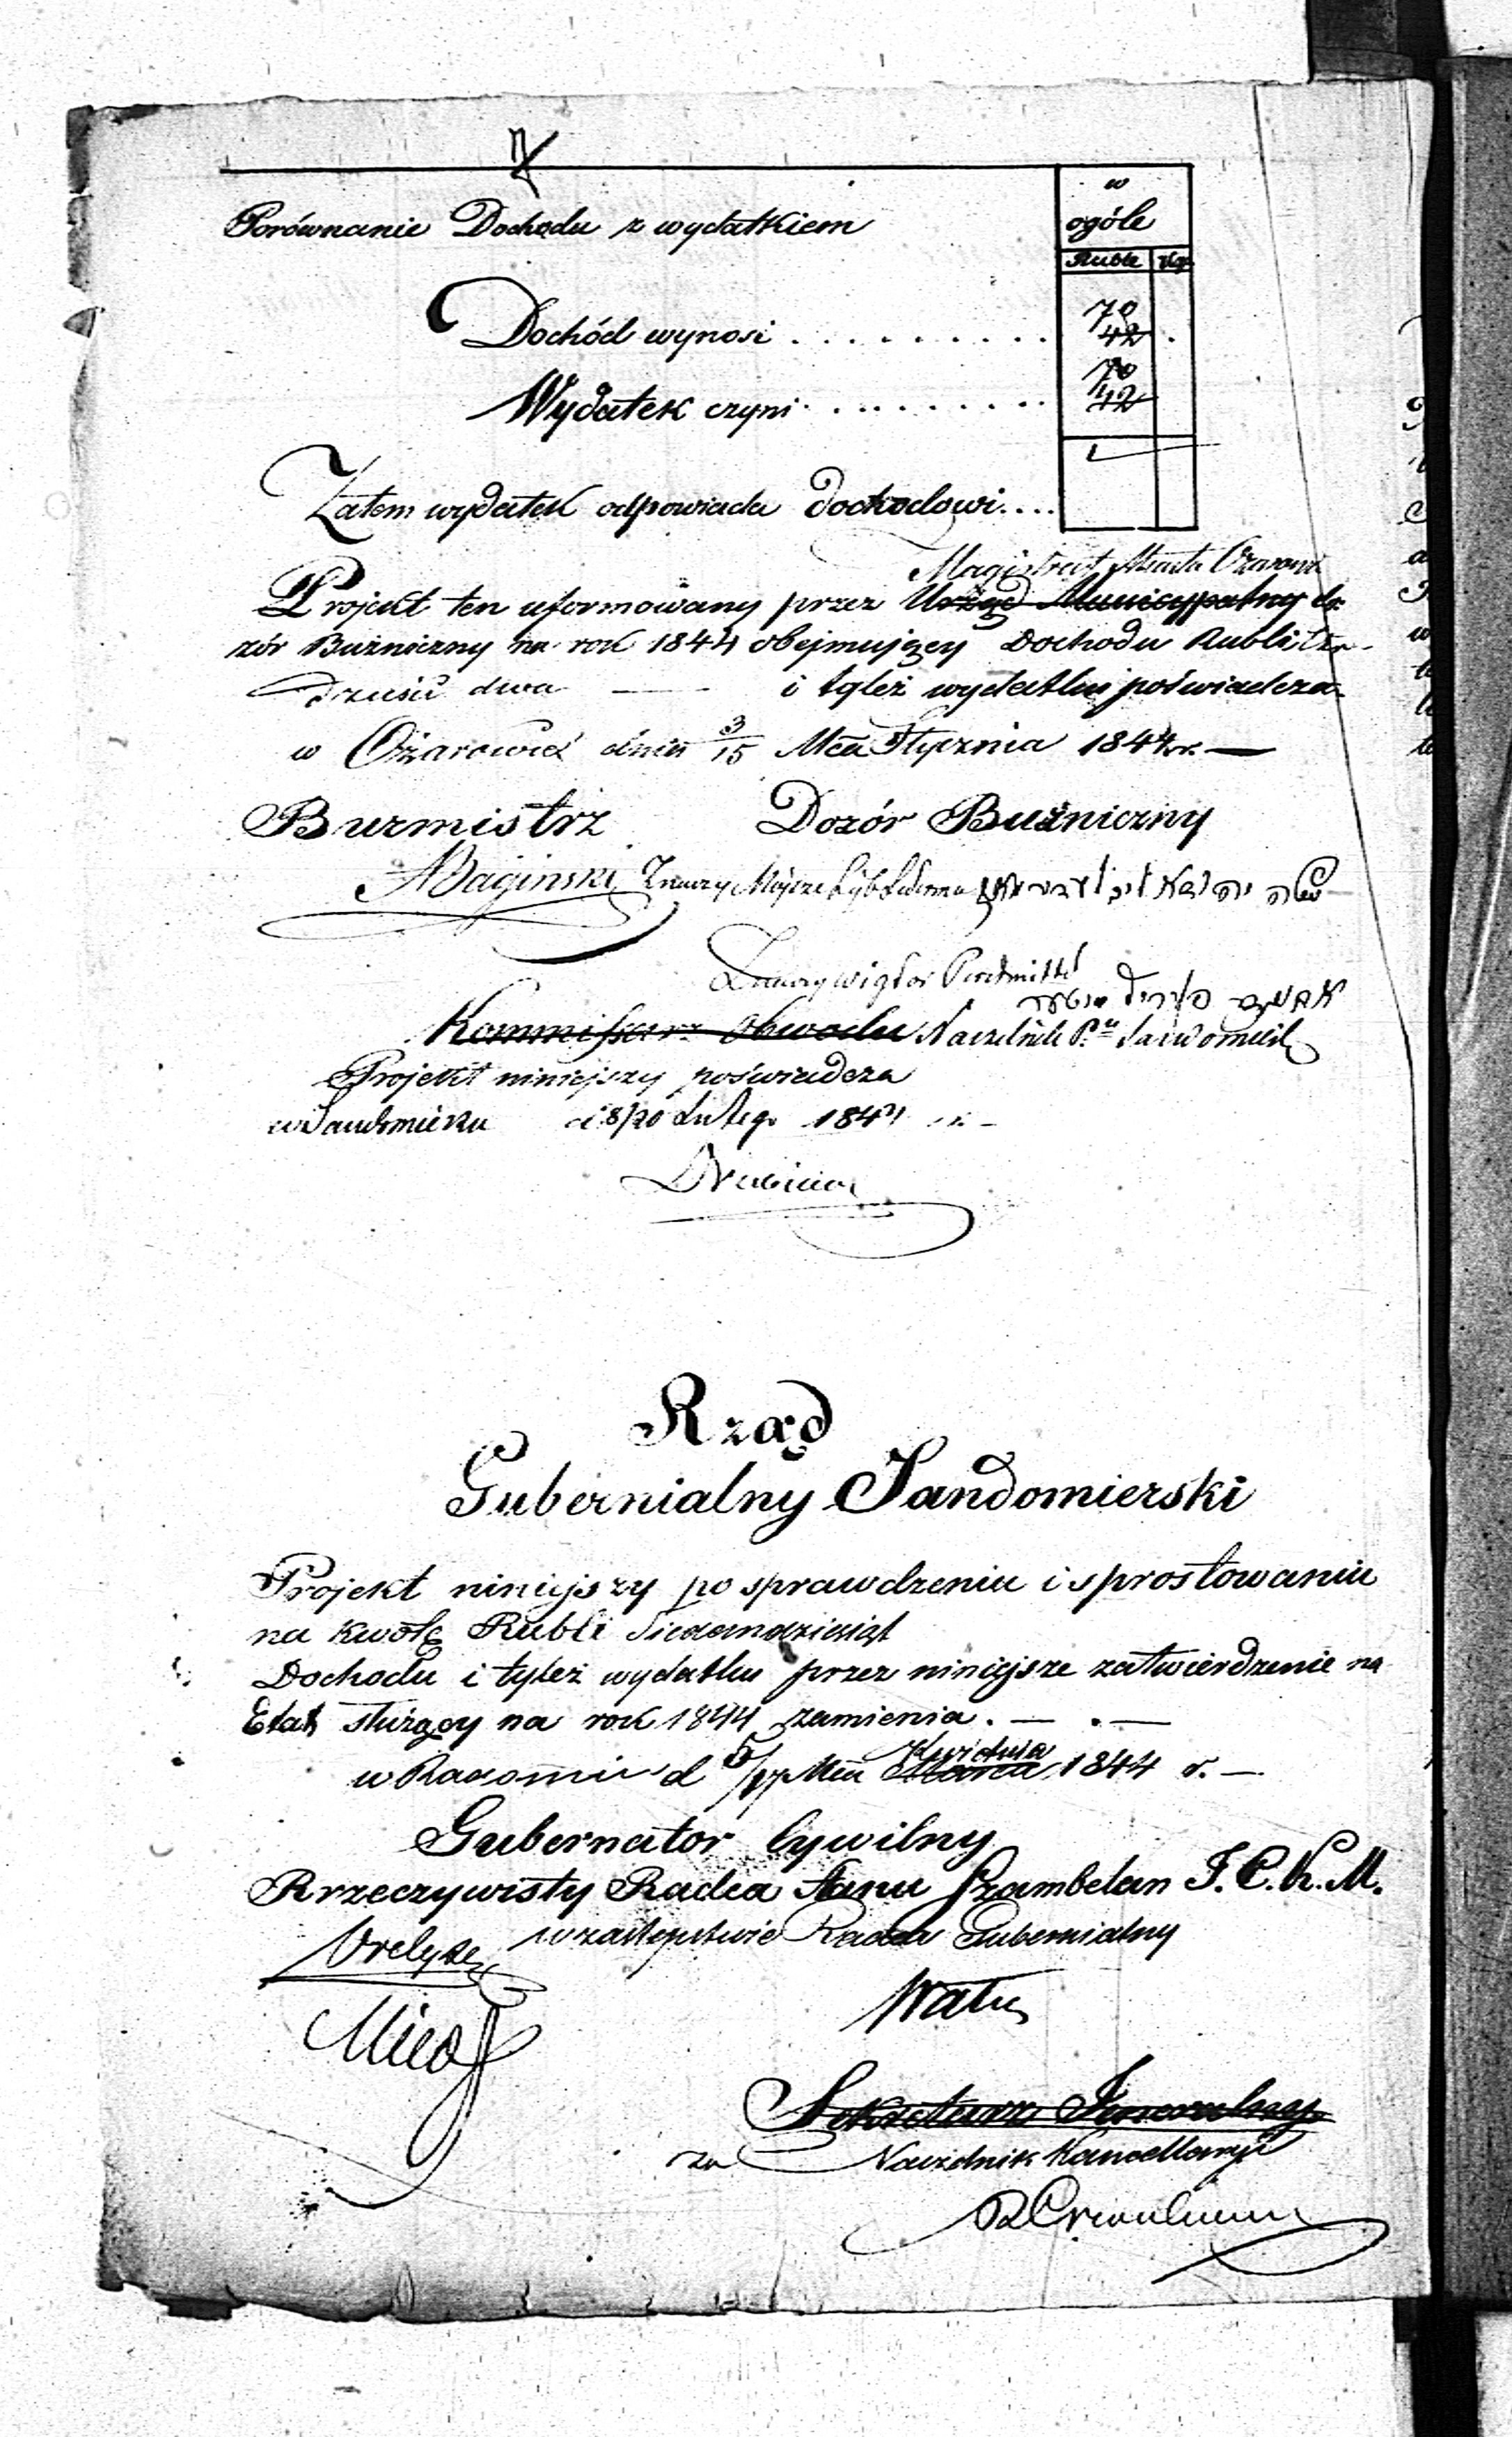 w
Porównanie Dochodu z wydatkiem ogóle
Ruble kop
Dochód wynosi . . . . . . . . . 70
42
Wydatek czyni . . . . . . . . . 70
42
Zatem wydatek odpowiada dochodowi....
Magistrat Miasta Ożarowa
Projekt ten uformowany przez Urząd Municypalny do-
zór Bużniczny na rok 1844 obejmujący Dochodu Rubli Czter-
dzieści dwa — i tyleż wydatku poświadcza
w Ożarowie dnia 3/15 Mca Stycznia 1844 r. —
Burmistrz Dozór Bużniczny
Baginski Znaczy Majzе Lyb
Znaczy Wigdor
Kommissarz Obwodu Naczelnik Ptu Sandomirsk
Projekt niniejszy poświadcza
w Sandomierzu d 8/20 Lutego 1844 r. –
Rząd
Gubernialny Sandomierski
Projekt niniejszy po sprawdzeniu i sprostowaniu
na kwotę Rubli Siedemdziesiąt
Dochodu i tyleż wydatku przez niniejsze zatwierdzenie na
Etat służący na rok 1844 zamienia. — . —
w Radomiu d 5/17 Mca Marca Kwietnia 1844 r. —
Gubernator Cywilny
Rzeczywisty Radca Stanu Szambelan J. C. K. M.
w zastępstwie Radca Gubernialny
Sekretarz Jeneralny
za Naczelnik Kancellaryi